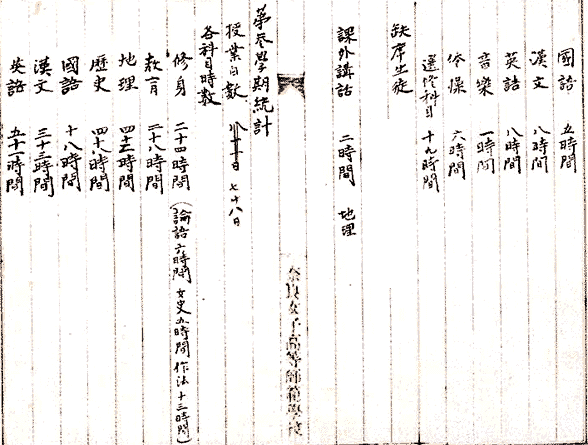 國語 五時間
漢文 八時間
英語 八時間
音樂 一時間
体操 六時間
選修科目 十九時間
缺席生徒
課外講話 二時間 地理
奈良女子高等師範學校
第参學期統計
授業日数 七十八日
各科目時数
修身 二十四時間 (論語六時間 女史五時間 作法十三時間)
教育 二十八時間
地理 四十五時間
歴史 四十八時間
國語 十八時間
漢文 三十三時間
英語 五十一時間